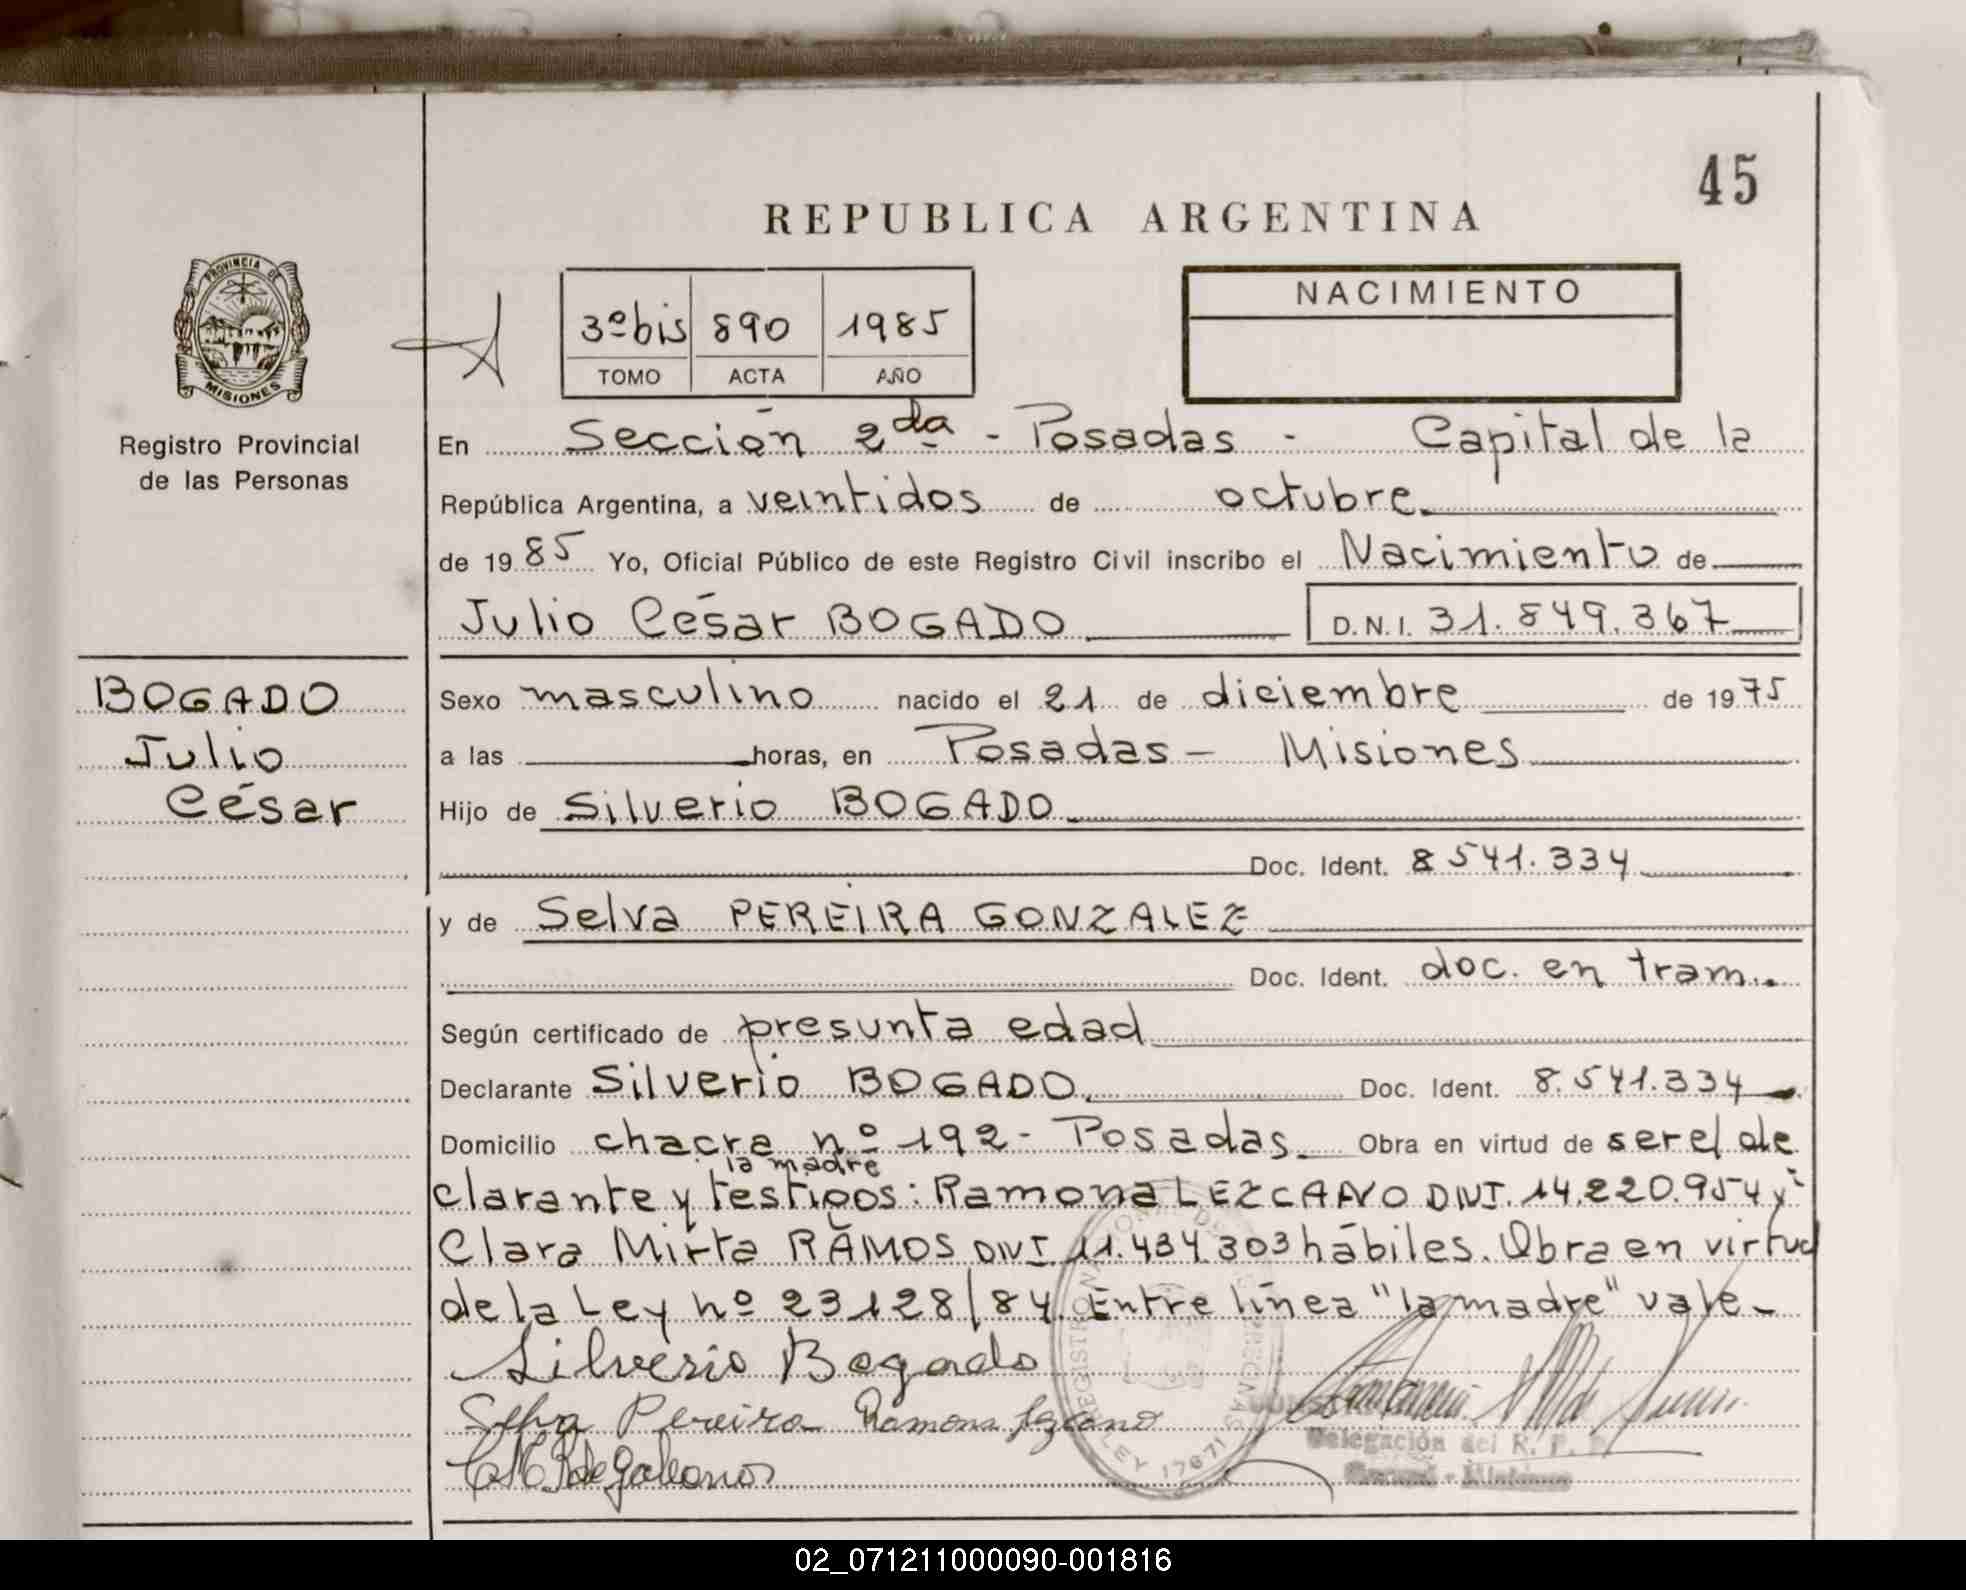 45
REPUBLICA ARGENTINA
PROVINCIA DE
MISIONES
Registro Provincial
de las Personas
3º bis 890 1985
TOMO ACTA AÑO
NACIMIENTO
En Sección 2da - Posadas - Capital de la
República Argentina, a veintidos de octubre.
de 1985 Yo, Oficial Público de este Registro Civil inscribo el Nacimiento de
Julio César BOGADO D.N.I. 31.849.367
BOGADO
Julio
César
Sexo masculino nacido el 21 de diciembre de 1975
a las horas, en Posadas - Misiones
Hijo de Silverio BOGADO
Doc. Ident. 8541.334
y de Selva PEREIRA GONZALEZ
Doc. Ident. doc. en tram..
Según certificado de presunta edad
Declarante Silverio BOGADO. Doc. Ident. 8.541.334
Domicilio chacra nº 192 - Posadas. Obra en virtud de ser el de
la madre
clarante y testigos: Ramona LEZCANO DNI. 14.220.954 y
Clara Mirta RAMOS DNI 11.434.303 hábiles. Obra en virtud
de la Ley nº 23128/84. Entre línea "la madre" vale-
Silverio Bogado
Selva Pereira Ramona Lezcano
REGISTRO NACIONAL DE LAS PERSONAS
LEY 17671
Delegación del R. P. P.
02_071211000090-001816